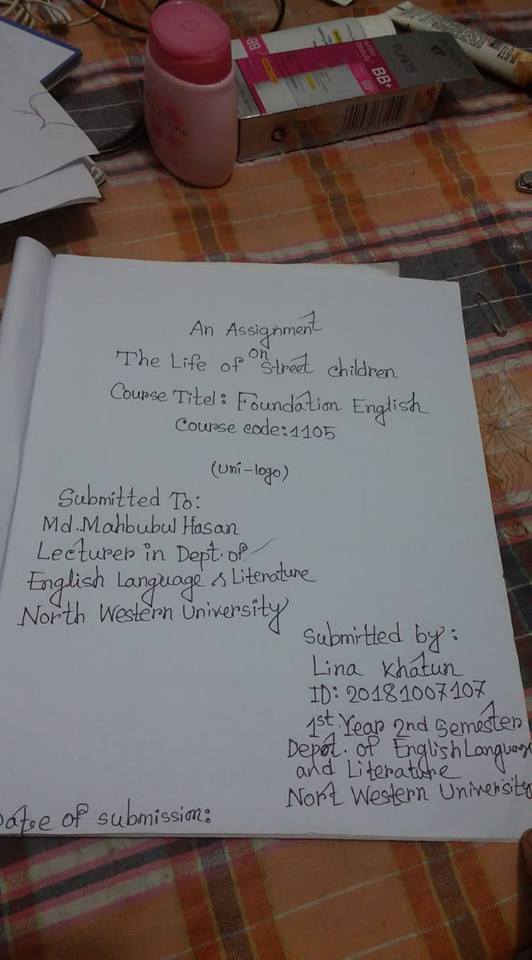 BB+
POND'S
BB+
An Assignment
on
The Life of Street children
Course Titel: Foundation English
Course code:1105
(Uni-logo)
Submitted To:
Md.Mahbubul Hasan
Lecturer in Dept. of
English Language & Literature
North Western University
Submitted by:
Lina Khatun
ID: 20181007107
1st Year 2nd Semester
Dept. of English Language
and Literature
Nort Western University
Datse of submission: